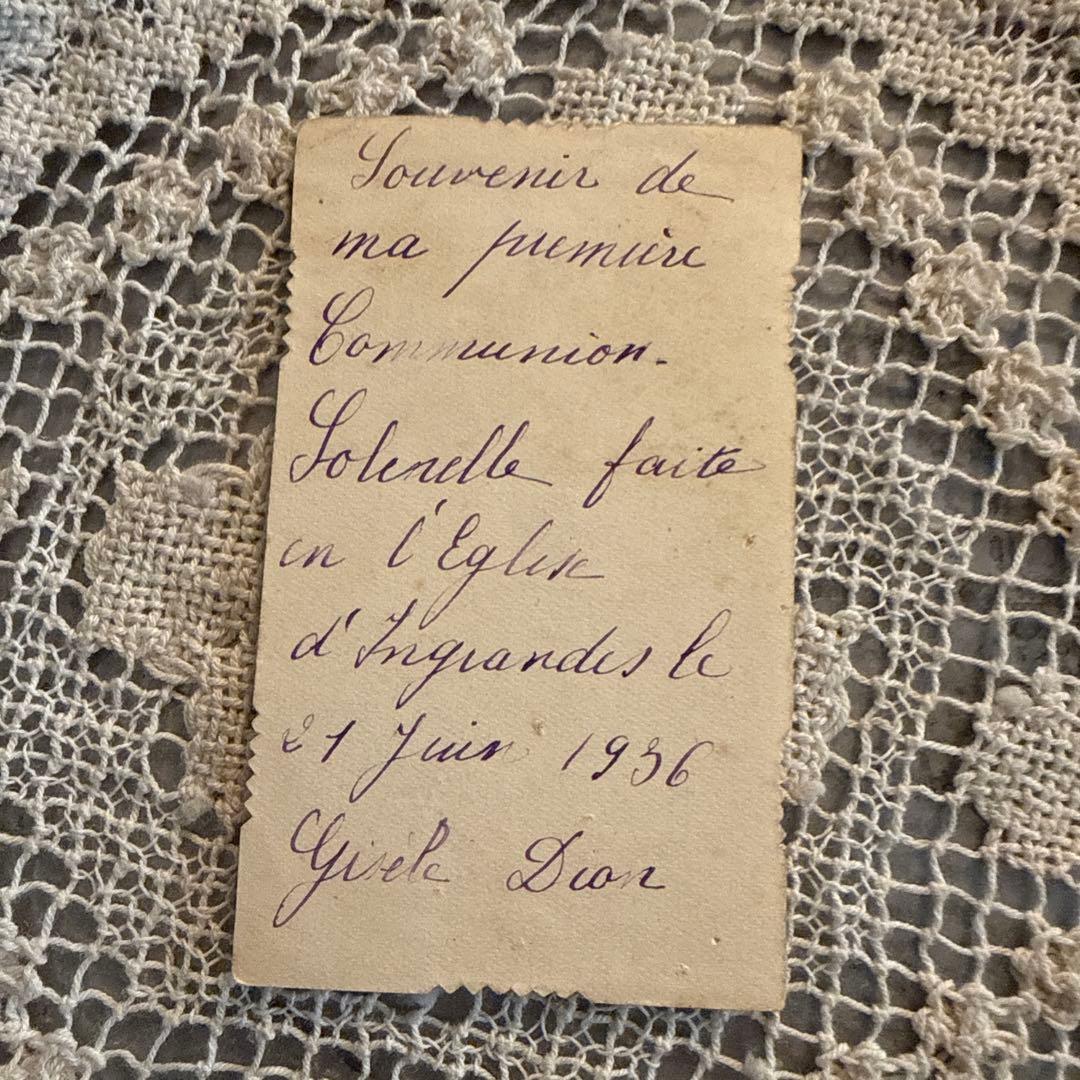 Souvenir de
ma première
Communion.
Solenelle faite
en l'Eglise
d'Ingrandes le
21 Juin 1936
Gisèle Dion